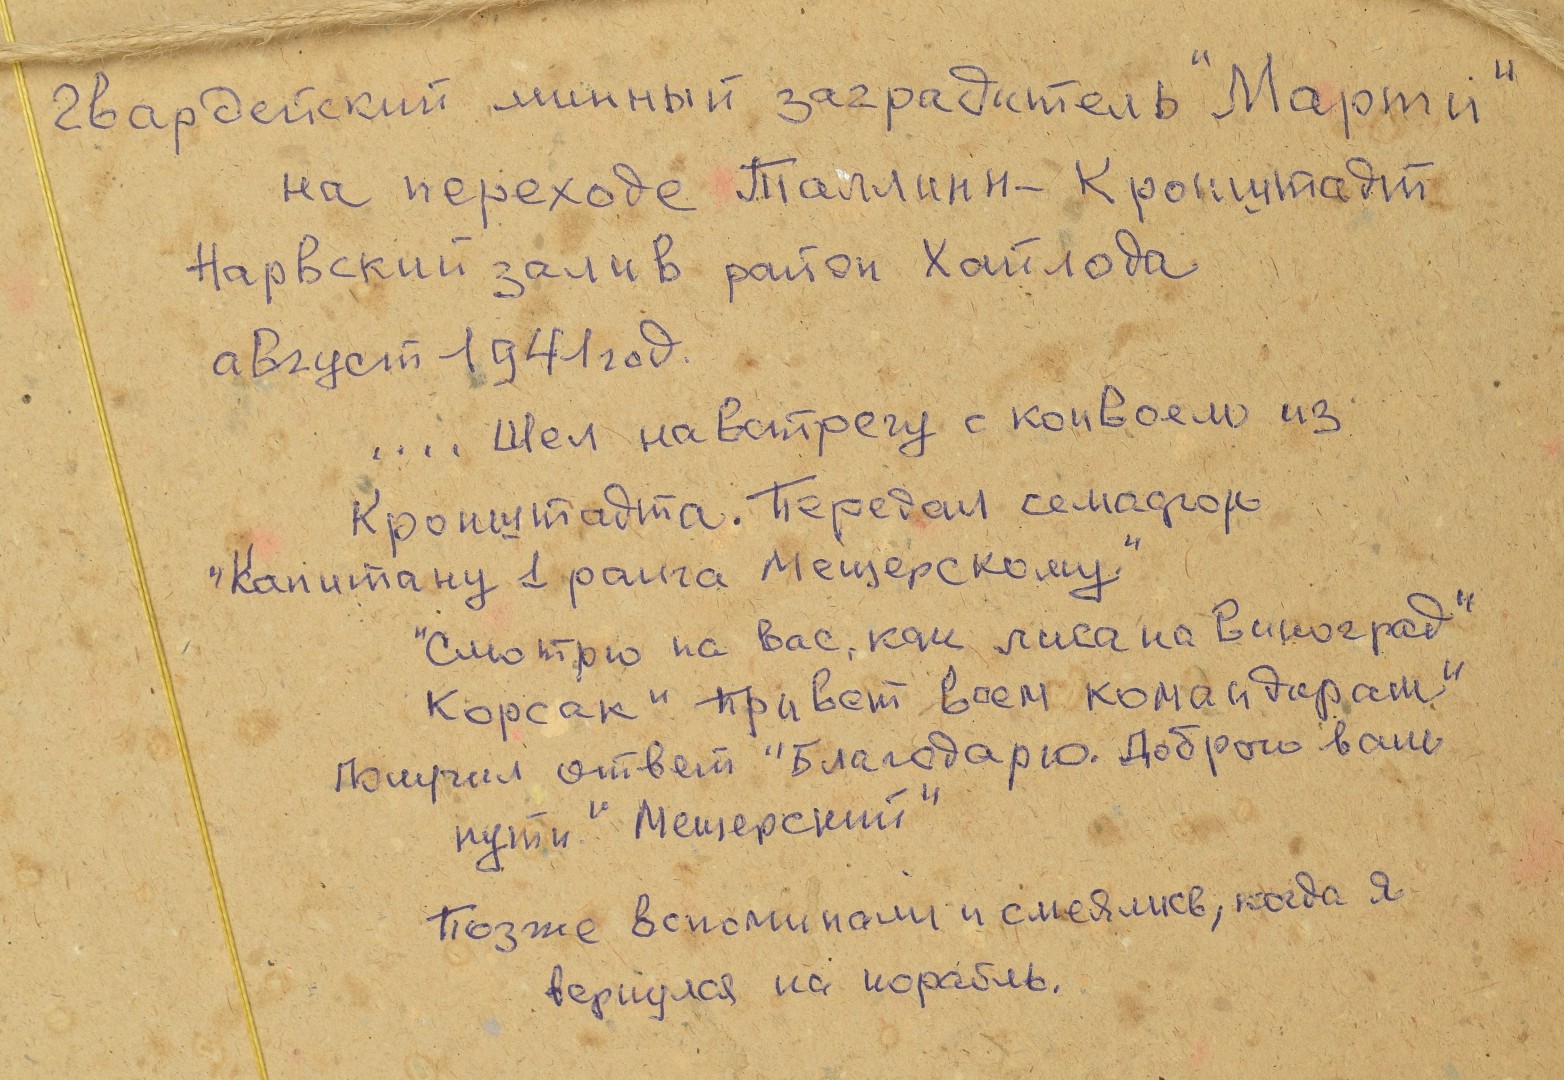 Гвардейский минный заградитель "Марти"
на переходе Таллинн - Кронштадт
Нарвский залив район Хайлода
август 1941 год.
.... Шел навстречу с конвоем из
Кронштадта. Передал семафор
"Капитану 1 ранга Мещерскому"
"Смотрю на вас, как лиса на виноград"
Корсак" Привет всем командирам"
Получил ответ "Благодарю. Доброго вам
пути" Мещерский"
Позже вспоминали и смеялись, когда я
вернулся на корабль.